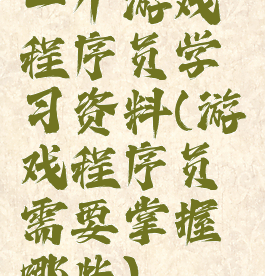 二十游戏
程序员学
习资料(游
戏程序员
需要掌握
哪些)